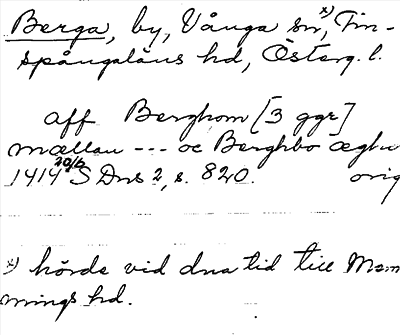 Berga, by, Vånga sn, x) Fin-
spångaläns hd, Österg. l.
aff Berghom [3 ggr]
mællan --- oc Berghbo æghu
1414 20/6 S Dns 2, s. 820. orig
x) hörde vid dna tid till Mem
mings hd.